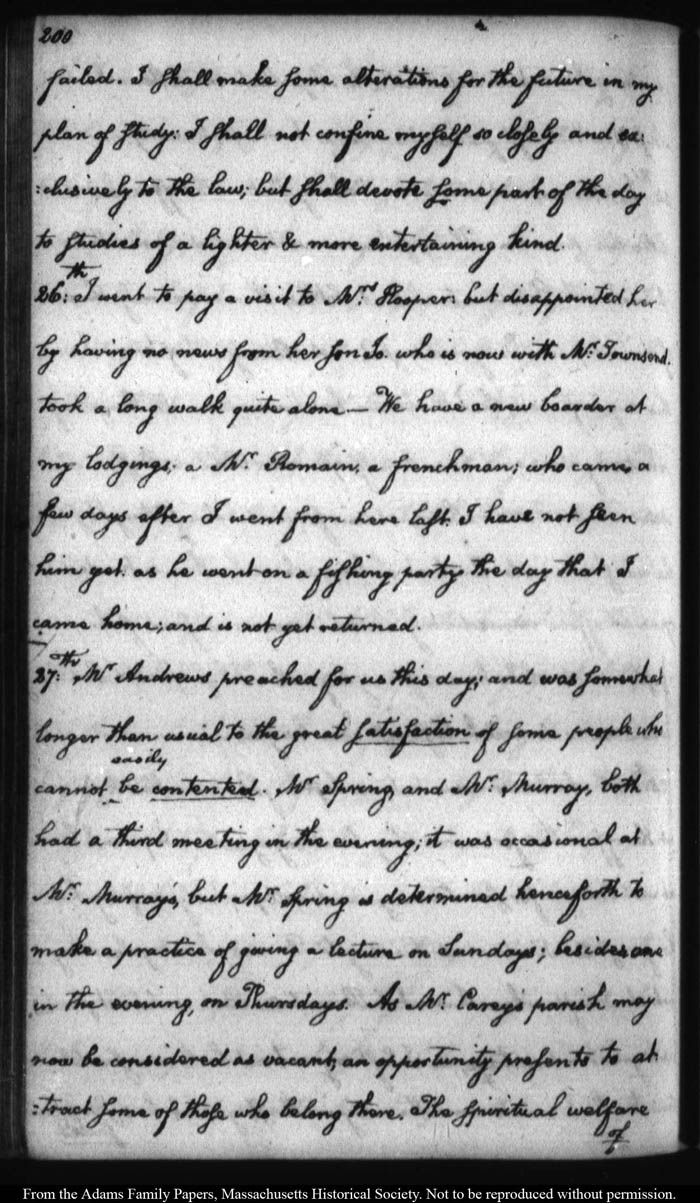 200
failed. I shall make some alterations for the future in my
plan of study: I shall not confine myself so closely and ex:
:clusively to the law; but shall devote some part of the day
to studies of a lighter & more entertaining kind.
26:th I went to pay a visit to Mrs Hooper: but disappointed her
by having no news from her son Jo. who is now with Mr: Townsend.
took a long walk quite alone — We have a new boarder at
my lodgings; a Mr. Romain, a frenchman; who came, a
few days after I went from here last. I have not seen
him yet. as he went on a fishing party the day that I
came home; and is not yet returned.
27:th Mr Andrews preached for us this day; and was somewhat
longer than usual to the great satisfaction of some people who
easily
cannot be contented. Mr Spring, and Mr: Murray, both
had a third meeting in the evening; it was occasional at
Mr: Murray's, but Mr Spring is determined henceforth to
make a practice of giving a lecture on Sundays; besides one
in the evening, on Thursdays. As Mr: Carey's parish may
now be considered as vacant, an opportunity presents to at
:tract some of those who belong there. The spiritual welfare
of
From the Adams Family Papers, Massachusetts Historical Society. Not to be reproduced without permission.